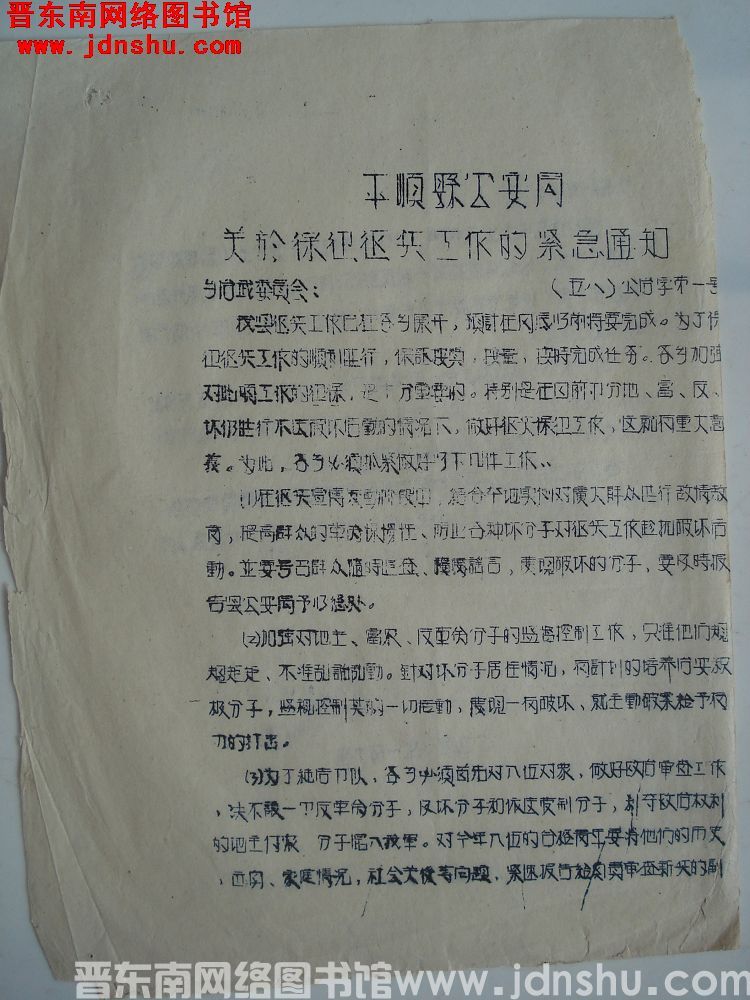 晋东南网络图书馆
www.jdnshu.com
平順縣公安局
关於保卫征兵工作的紧急通知
乡治武委员会：
（五八）公治字第一号
征兵工作已在各乡展开，預計在 前将要完成。为了保
卫征兵工作的順利進行，保証按質，按量，按時完成任务。各乡加强
对此項工作的 保，是十分重要的。特别是在目前部分地、富、反、
坏仍進行不法破坏活動的情况下，做好征兵保卫工作，这就有重大意
義。为此，各乡必須抓紧做好以下几件工作、
(1)在征兵宣傳发動阶段中，結合各地 对廣大群众進行敌情教
育，提高群众的革命 惕性、防止各种坏分子对征兵工作趁机破坏活
動。並要号召群众随時 、 謠言，发現破坏的分子，要及時报
告县公安局予以 处。
(2)加强对地主、富农、反革命分子的监督控制工作，只准他们規
規矩矩、不准乱說乱動。針对坏分子居住情况，有計划的培养治安积
极分子，监視控制其 一切活動，发現一有破坏、就主動破案給予有
力的打击。
(3)为了純 队，各乡必須首先对入伍对象，做好政治审查工作
，决不讓一 反革命分子，反坏分子和依法受制分子，剝夺政治权利
的地主 分子混入我軍。对今年入伍的 要将他们的历史
、 、家庭情况，社会关係等问題，紧 报告 审查新兵的副
晋东南网络图书馆www.jdnshu.com